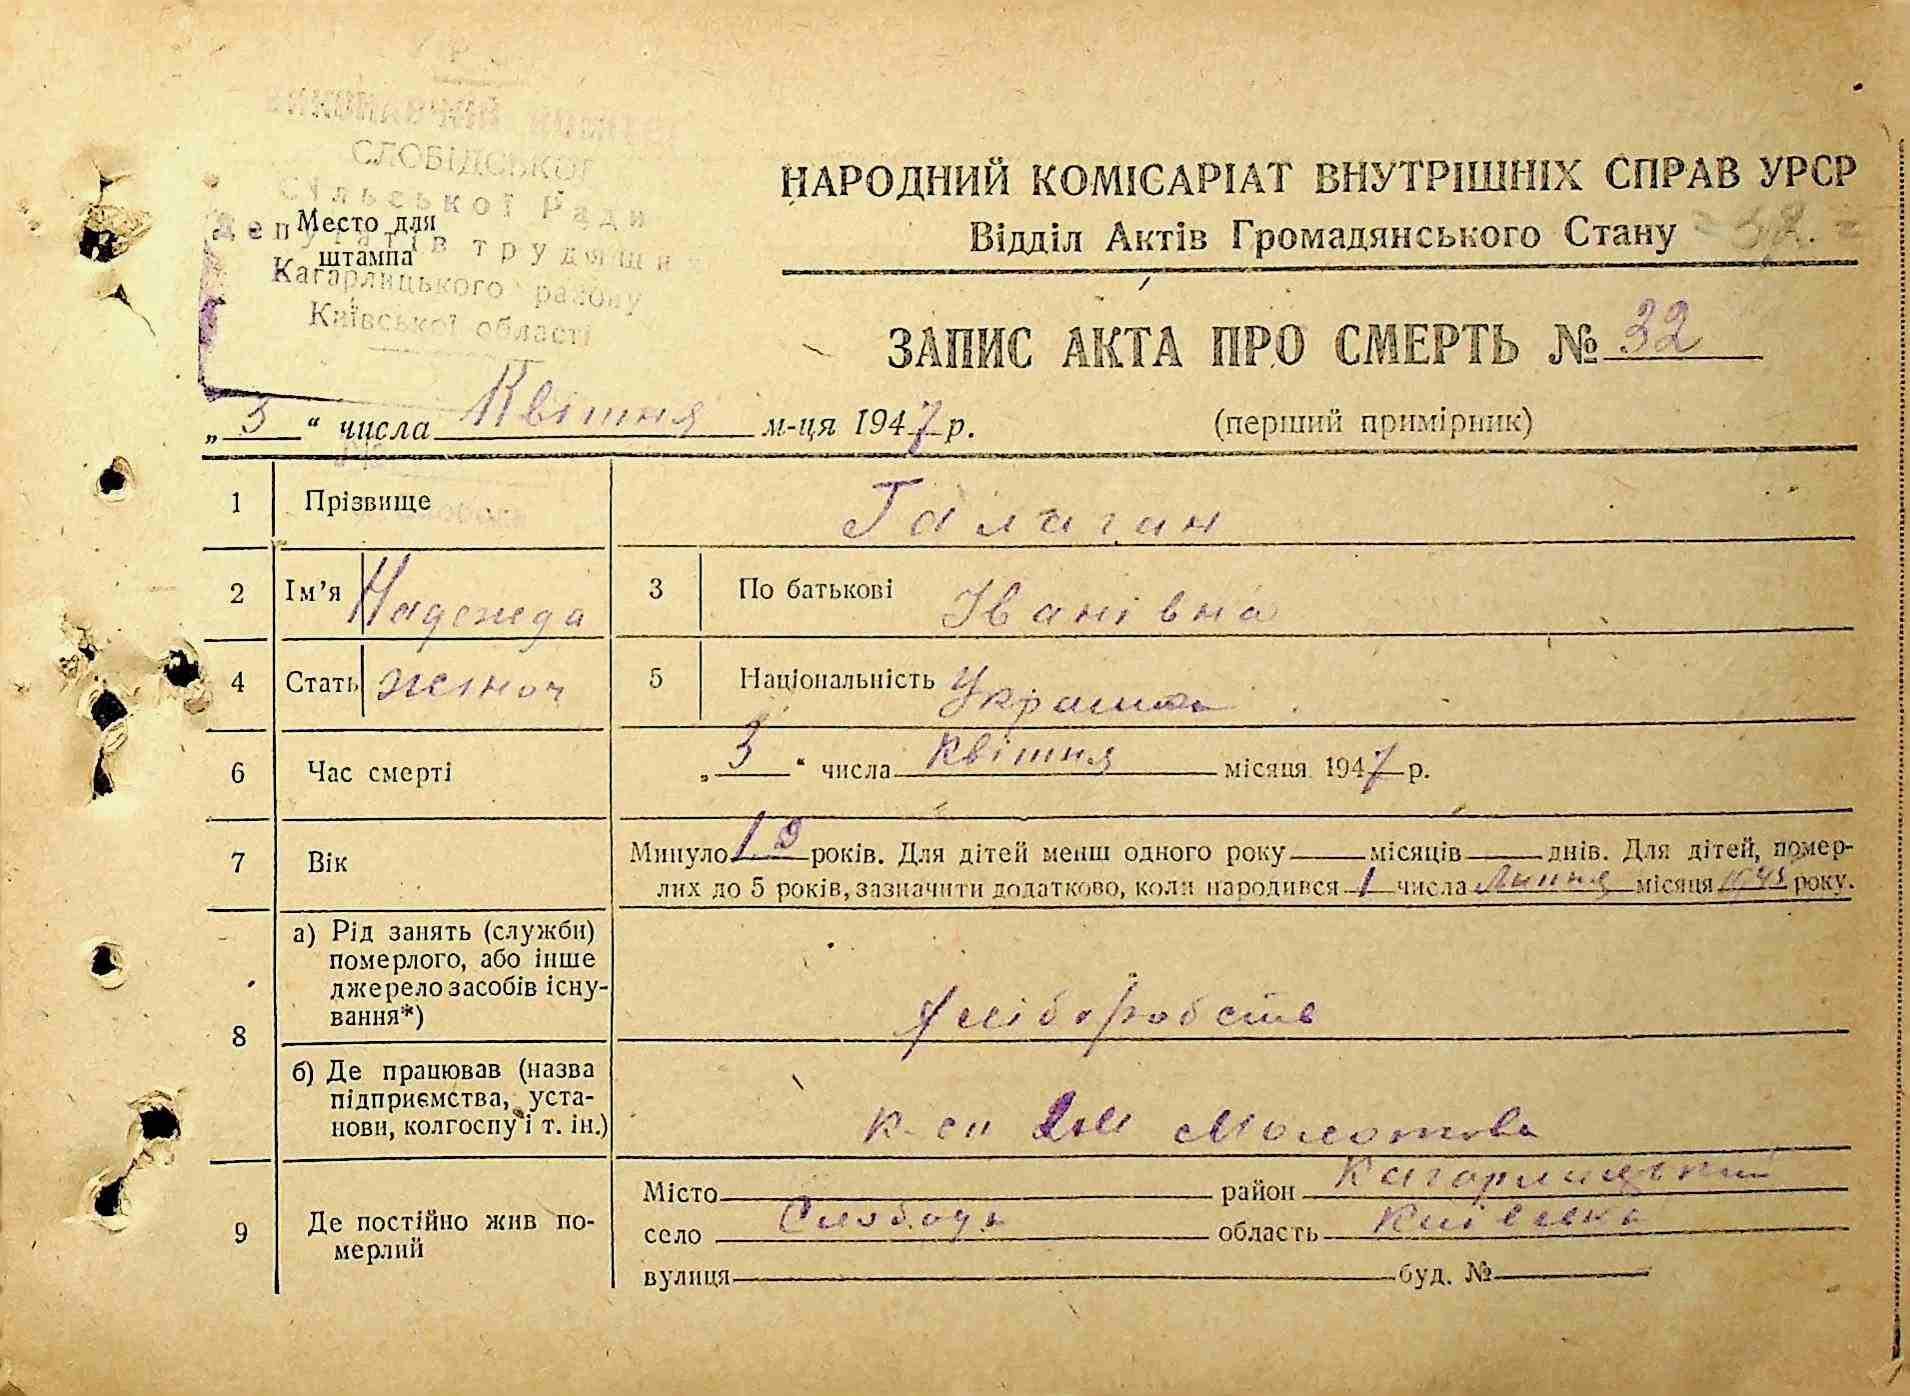 СЛОБІДСЬКОЇ
Сільської Ради
Депутатів трудящих
Кагарлицького району
Київської області
Место для
штампа
НАРОДНИЙ КОМІСАРІАТ ВНУТРІШНІХ СПРАВ УРСР
Відділ Актів Громадянського Стану
ЗАПИС АКТА ПРО СМЕРТЬ № 32
„ 3 “ числа Квітня м-ця 1947 р. (перший примірник)
1 Прізвище Галаган
2 Ім’я Надежда 3 По батькові Іванівна
4 Стать жіноч 5 Національність Україн
6 Час смерті „ 3 “ числа квітня місяця 1947 р.
7 Вік Минуло 1 років. Для дітей менш одного року місяців днів. Для дітей, помер-
лих до 5 років, зазначити додатково, коли народився 1 числа Липня місяця 1945 року.
8 а) Рід занять (служби)
померлого, або інше
джерело засобів існу-
вання*)
хліборобств
б) Де працював (назва
підприємства, уста-
нови, колгоспу і т. ін.)
к-сп ім Молотова
9 Де постійно жив по-
мерлий
Місто район Кагарлицький
село Слобода область Київська
вулиця буд. №